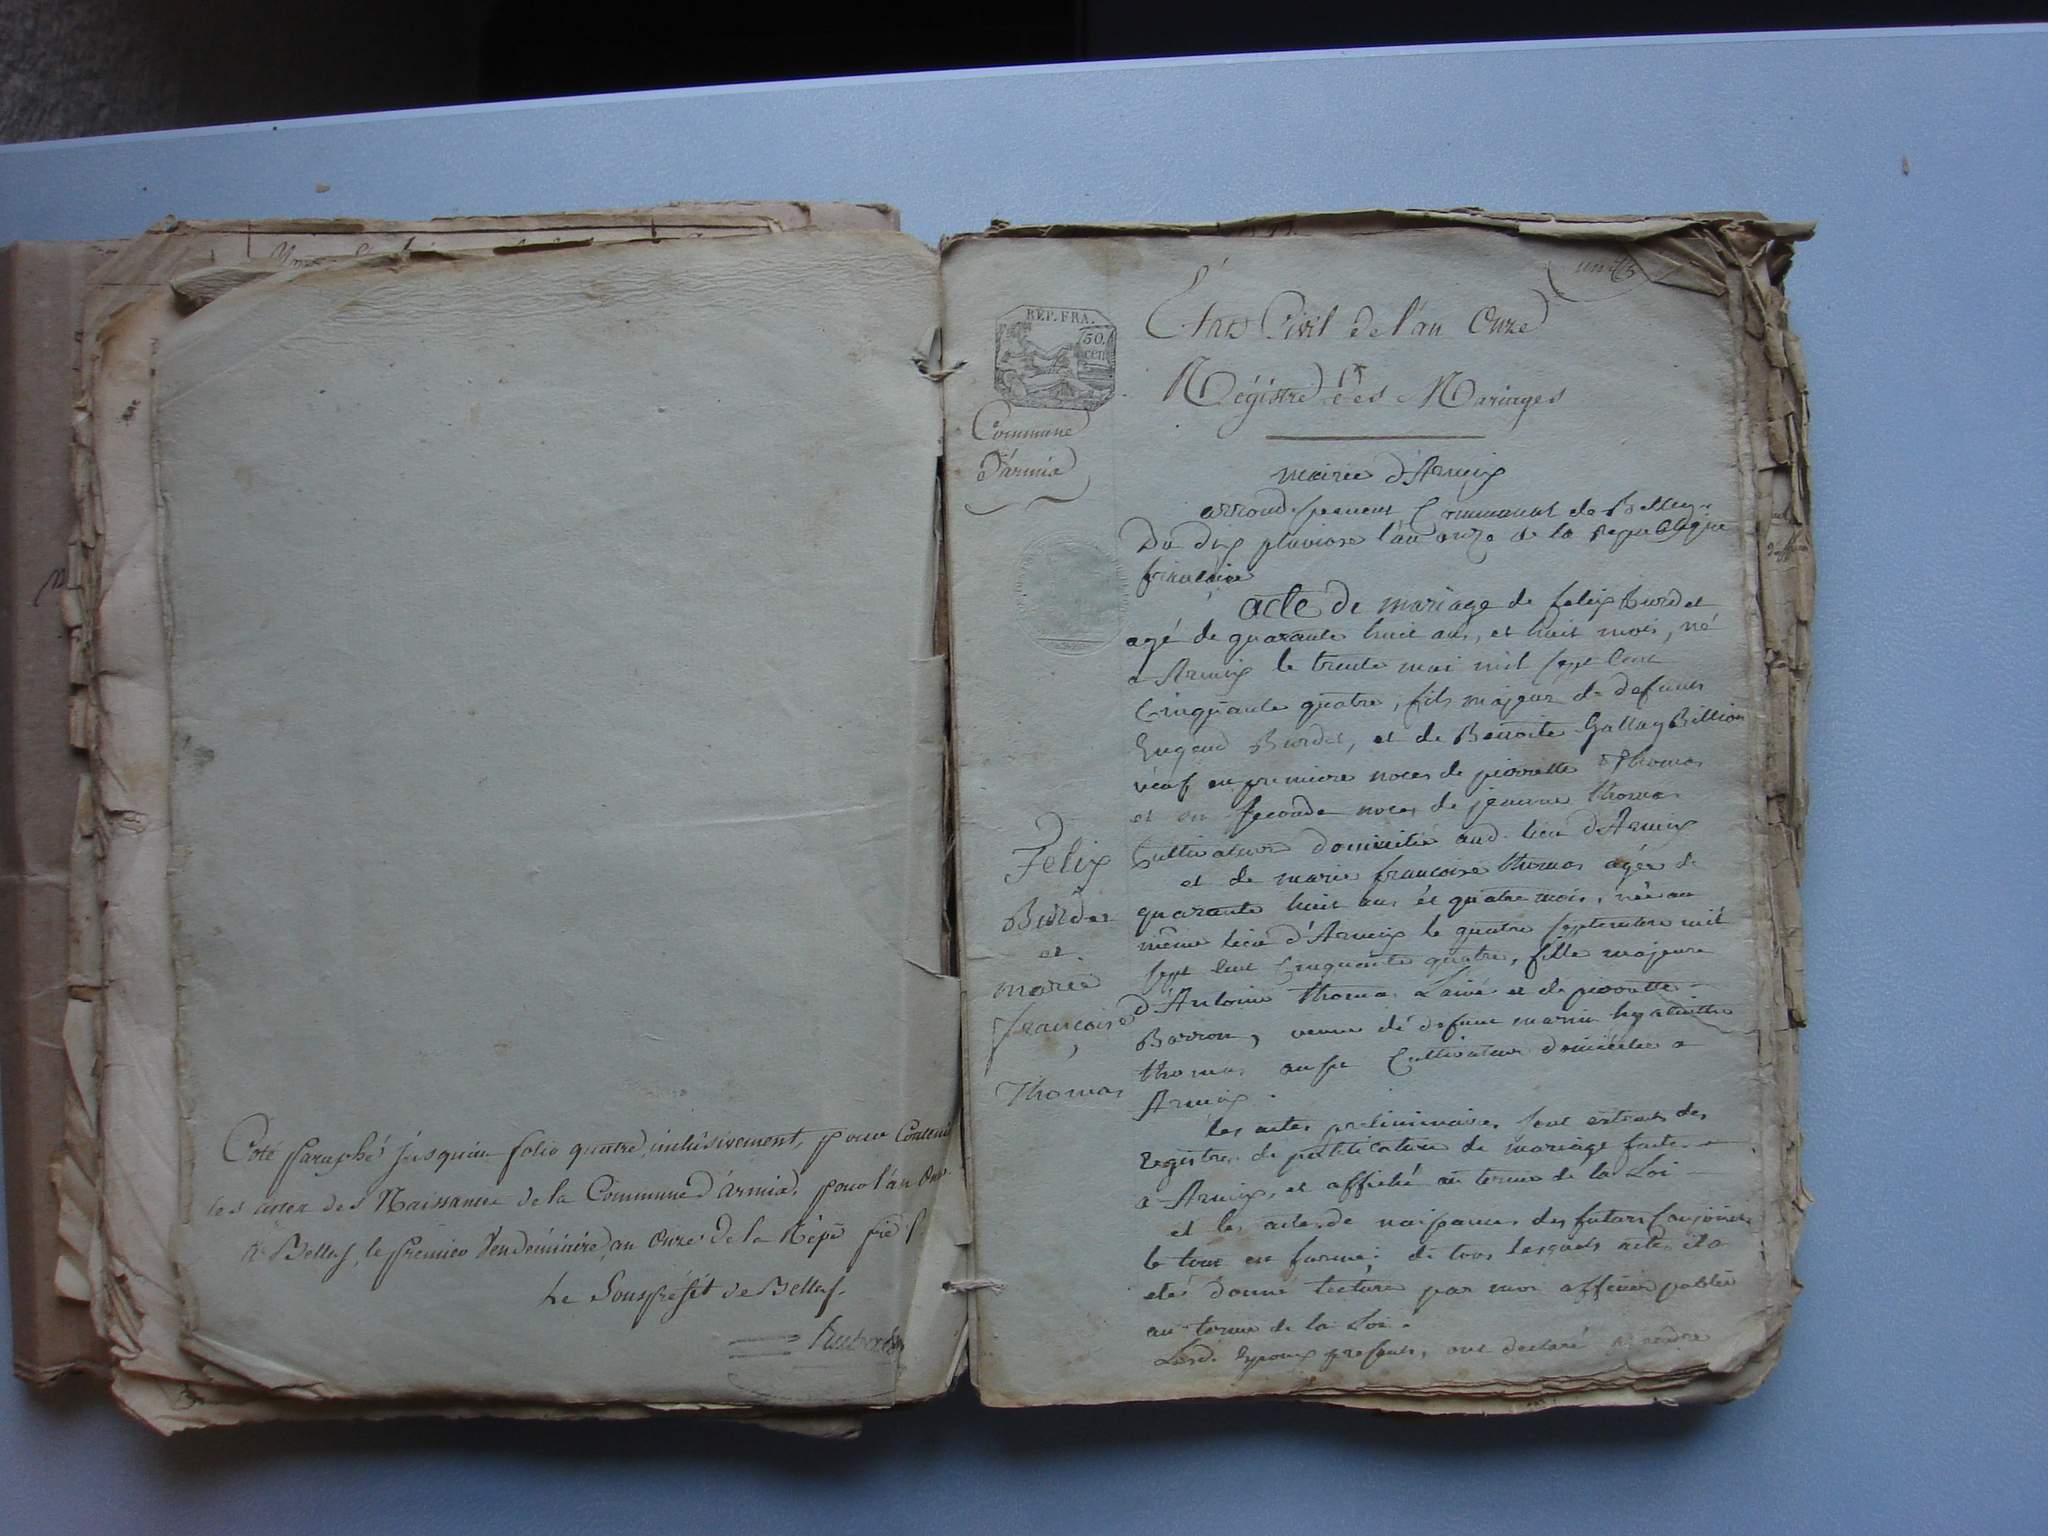 Coté & Paraphé jusqu'au folio quatre inclusivement, pour contenir
les actes des Naissances de la Commune d'armix, pour l'an onze
à Belley, le premier Vendémiaire, an onze de la Rép. fr.
Le Sousprefet de Belley.
REP. FRA.
50.
cen
Commune
d'armix
État Civil de l'an Onze
Régistre des Mariages
mairie d'Armix
arrondissement Communal de Belley
Du dix pluviose l'an onze de la republique
francaise
acte de mariage de felix Burdet
agé de quarante huit ans, et huit mois, né
a Armix le trente mai mil sept cent
Cinquante quatre, fils majeur de defunts
Eugend Burdet, et de Benoite Gallay Billion
veuf en premiere noces de pierrette Thomas
et en seconde noces de jeanne thomas
Cultivateur domicilié aud. lieu d'Armix
et de marie francoise thomas agée de
quarante huit ans et quatre mois, née au
même lieu d'Armix le quatre septembre mil
sept cent Cinquante quatre, fille majeure
d'Antoine thomas Lainé et de pierrette
Barron, veuve de defunt marin hyacinthe
thomas aussi Cultivateur domiciliée a
Armix.
Felix
Burdet
et
marie
francoise
Thomas
les actes preliminaires sont extraits des
registres de publication de mariage faites
a Armix, et affiché au terme de la Loi
et les actes de naissances des futurs Conjoints
le tout en forme; de tous lesquels actes il a
eté donné lecture par moi officier public
au terme de la Loi.
Lesd. Epoux presents, ont declaré prendre